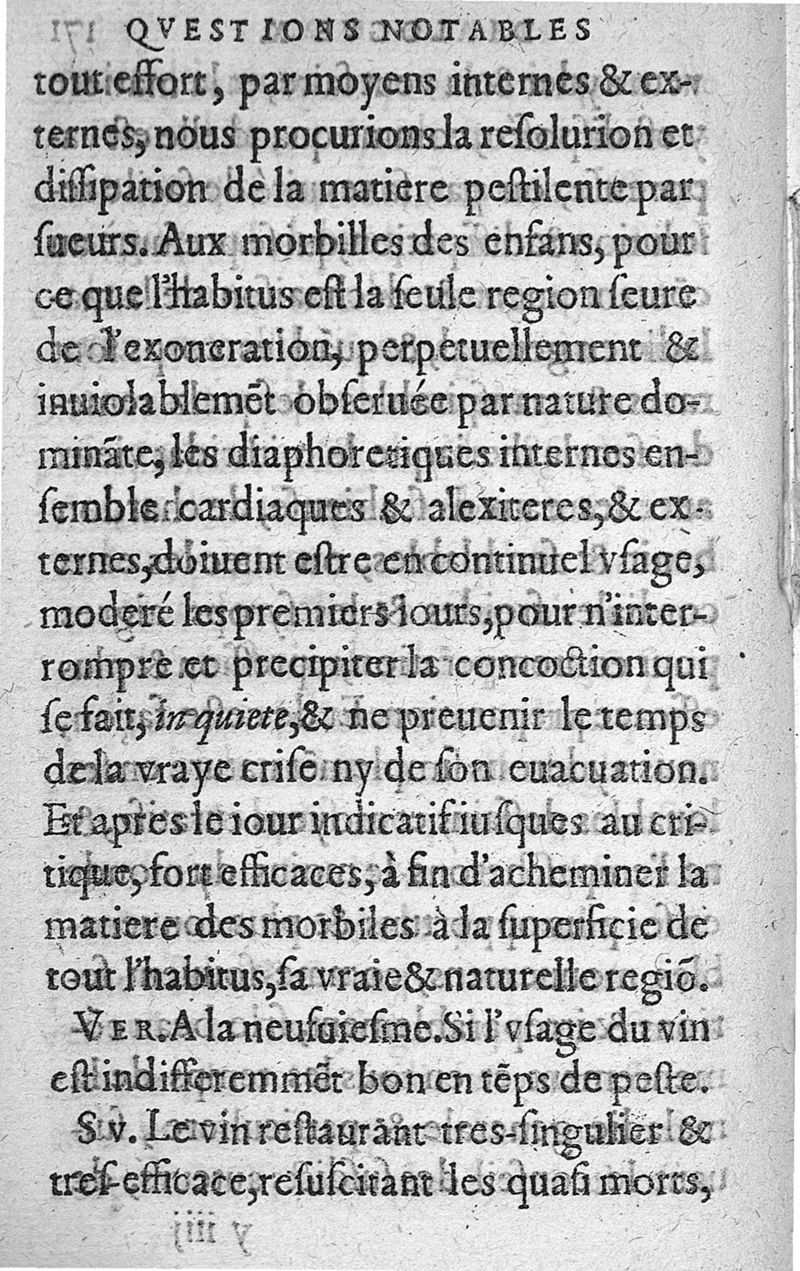 QVESTIONS NOTABLES
tout effort, par moyens internes & ex-
ternes, nous procurions la reſolurion et
diſſipation de la matiere peſtilente par
ſueurs. Aux morbilles des enfans, pour
ce que l'Habitus eſt la ſeule region ſeure
de l'exoneration, perpetuellement &
inuiolablemẽt obſeruée par nature do-
minãte, les diaphoretiques internes en-
ſemble cardiaques & alexiteres, & ex-
ternes, doiuent eſtre en continuel vſage,
moderé les premiers iours, pour n'inter-
rompre et precipiter la concoction qui
ſe fait, in quiete, & ne preuenir le temps
de la vraye criſe ny de ſon euacuation.
Et apres le iour indicatif iuſques au cri-
tique, fort efficaces, à fin d'acheminer la
matiere des morbiles à la ſuperficie de
tout l'habitus, ſa vraie & naturelle regiõ.
VER. A la neufuieſme. Si l'vſage du vin
eſt indifferemmẽt bon en tẽps de peſte.
SV. Le vin reſtaurant tres-ſingulier &
treſ-efficace, reſuſcitant les quaſi morts,